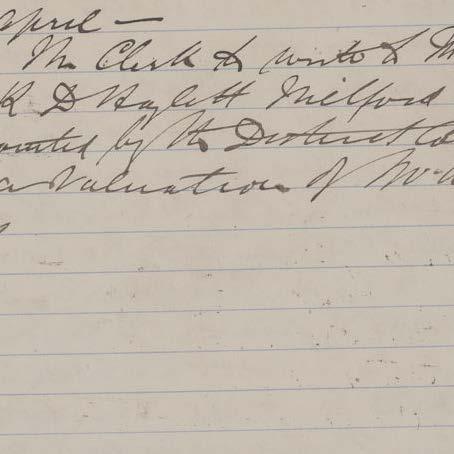 April —
The Clerk to write to M
K D Hazlett Milford
ointed by the District Co
a Valuation of